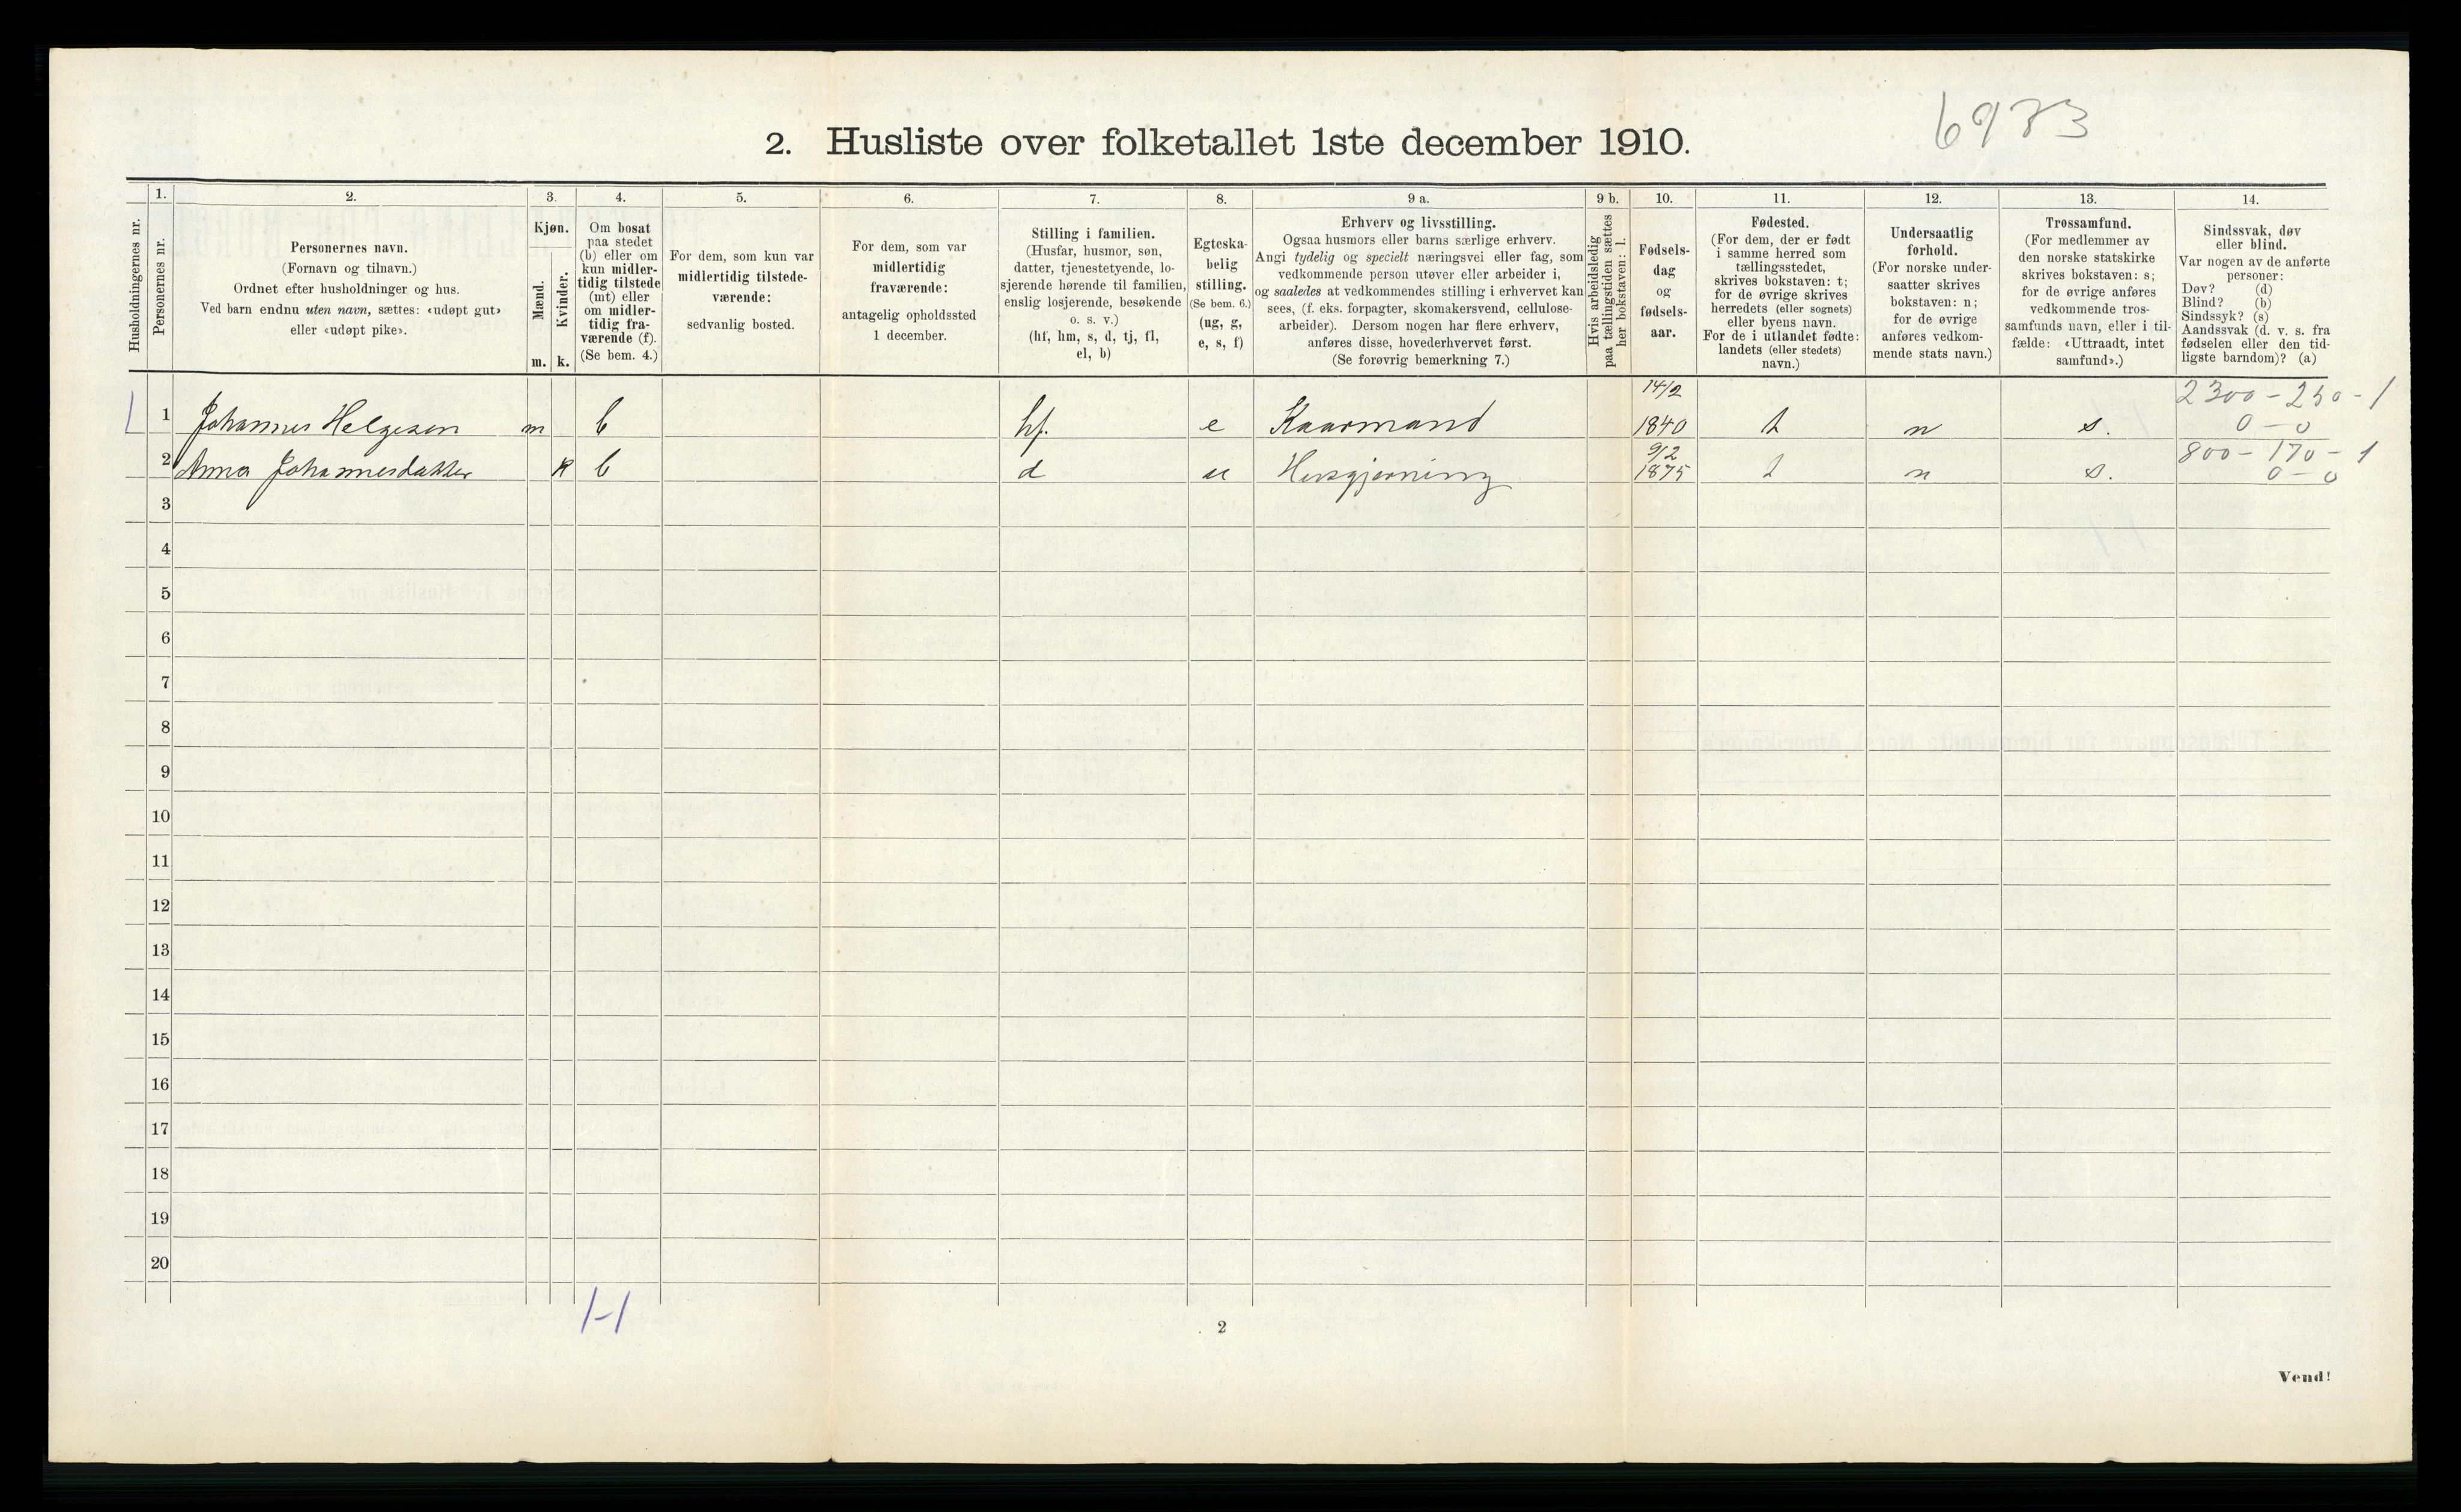 6983
2. Husliste over folketallet 1ste december 1910.
Husholdningernes nr.
1.
Personernes nr.
2.
Personernes navn.
(Fornavn og tilnavn.)
Ordnet efter husholdninger og hus.
Ved barn endnu uten navn, sættes: «udøpt gut»
eller «udøpt pike».
3.
Kjøn.
Mænd.
m.
Kvinder.
k.
4.
Om bosat
paa stedet
(b) eller om
kun midler-
tidig tilstede
(mt) eller
om midler-
tidig fra-
værende (f).
(Se bem. 4.)
5.
For dem, som kun var
midlertidig tilstede-
værende:
sedvanlig bosted.
6.
For dem, som var
midlertidig
fraværende:
antagelig opholdssted
1 december.
7.
Stilling i familien.
(Husfar, husmor, søn,
datter, tjenestetyende, lo-
sjerende hørende til familien,
enslig losjerende, besøkende
o. s. v.)
(hf, hm, s, d, tj, fl,
el, b)
8.
Egteska-
belig
stilling.
(Se bem. 6.)
(ug, g,
e, s, f)
9 a.
Erhverv og livsstilling.
Ogsaa husmors eller barns særlige erhverv.
Angi tydelig og specielt næringsvei eller fag, som
vedkommende person utøver eller arbeider i,
og saaledes at vedkommendes stilling i erhvervet kan
sees, (f. eks. forpagter, skomakersvend, cellulose-
arbeider). Dersom nogen har flere erhverv,
anføres disse, hovederhvervet først.
(Se forøvrig bemerkning 7.)
9 b.
Hvis arbeidsledig
paa tællingstiden sættes
her bokstaven: l.
10.
Fødsels-
dag
og
fødsels-
aar.
11.
Fødested.
(For dem, der er født
i samme herred som
tællingsstedet,
skrives bokstaven: t;
for de øvrige skrives
herredets (eller sognets)
eller byens navn.
For de i utlandet fødte:
landets (eller stedets)
navn.)
12.
Undersaatlig
forhold.
(For norske under-
saatter skrives
bokstaven: n;
for de øvrige
anføres vedkom-
mende stats navn.)
13.
Trossamfund.
(For medlemmer av
den norske statskirke
skrives bokstaven: s;
for de øvrige anføres
vedkommende tros-
samfunds navn, eller i til-
fælde: «Uttraadt, intet
samfund».)
14.
Sindssvak, døv
eller blind.
Var nogen av de anførte
personer:
Døv? (d)
Blind? (b)
Sindssyk? (s)
Aandssvak (d. v. s. fra
fødselen eller den tid-
ligste barndom)? (a)
14/2 2300-250-1
1 1 Johannes Helgesen m b hf. e Kaarmand 1840 t n s. 0-0
9/2 800-170-1
2 Anna Johannesdatter k b d u Husgjerning 1875 t n s. 0-0
3
4
5
6
7
8
9
10
11
12
13
14
15
16
17
18
19
20
1-1
2
Vend!